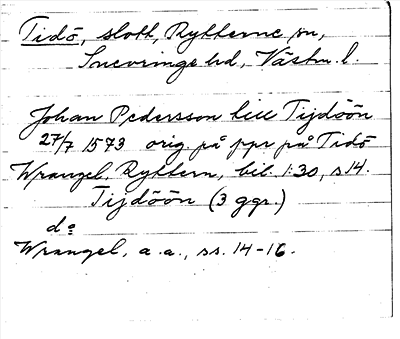 Tidö, slott, Rytterne sn,
Snevringe hd, Västm. l.
Johan Pedersson till Tijdöön
27/7 1573 orig. på ppr på Tidö
Wrangel, Ryttern, bil. 1:30, s 14.
Tijdöön (3 ggr.)
do
Wrangel, a. a., ss. 14-16.